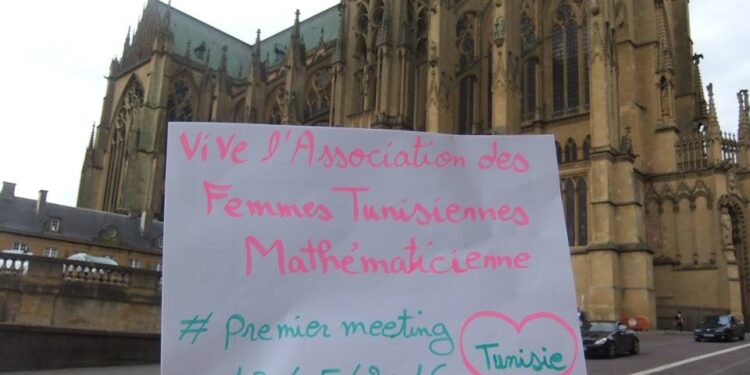 Vive l'Association des
Femmes Tunisiennes
Mathématicienne
# Premier meeting
Tunisie